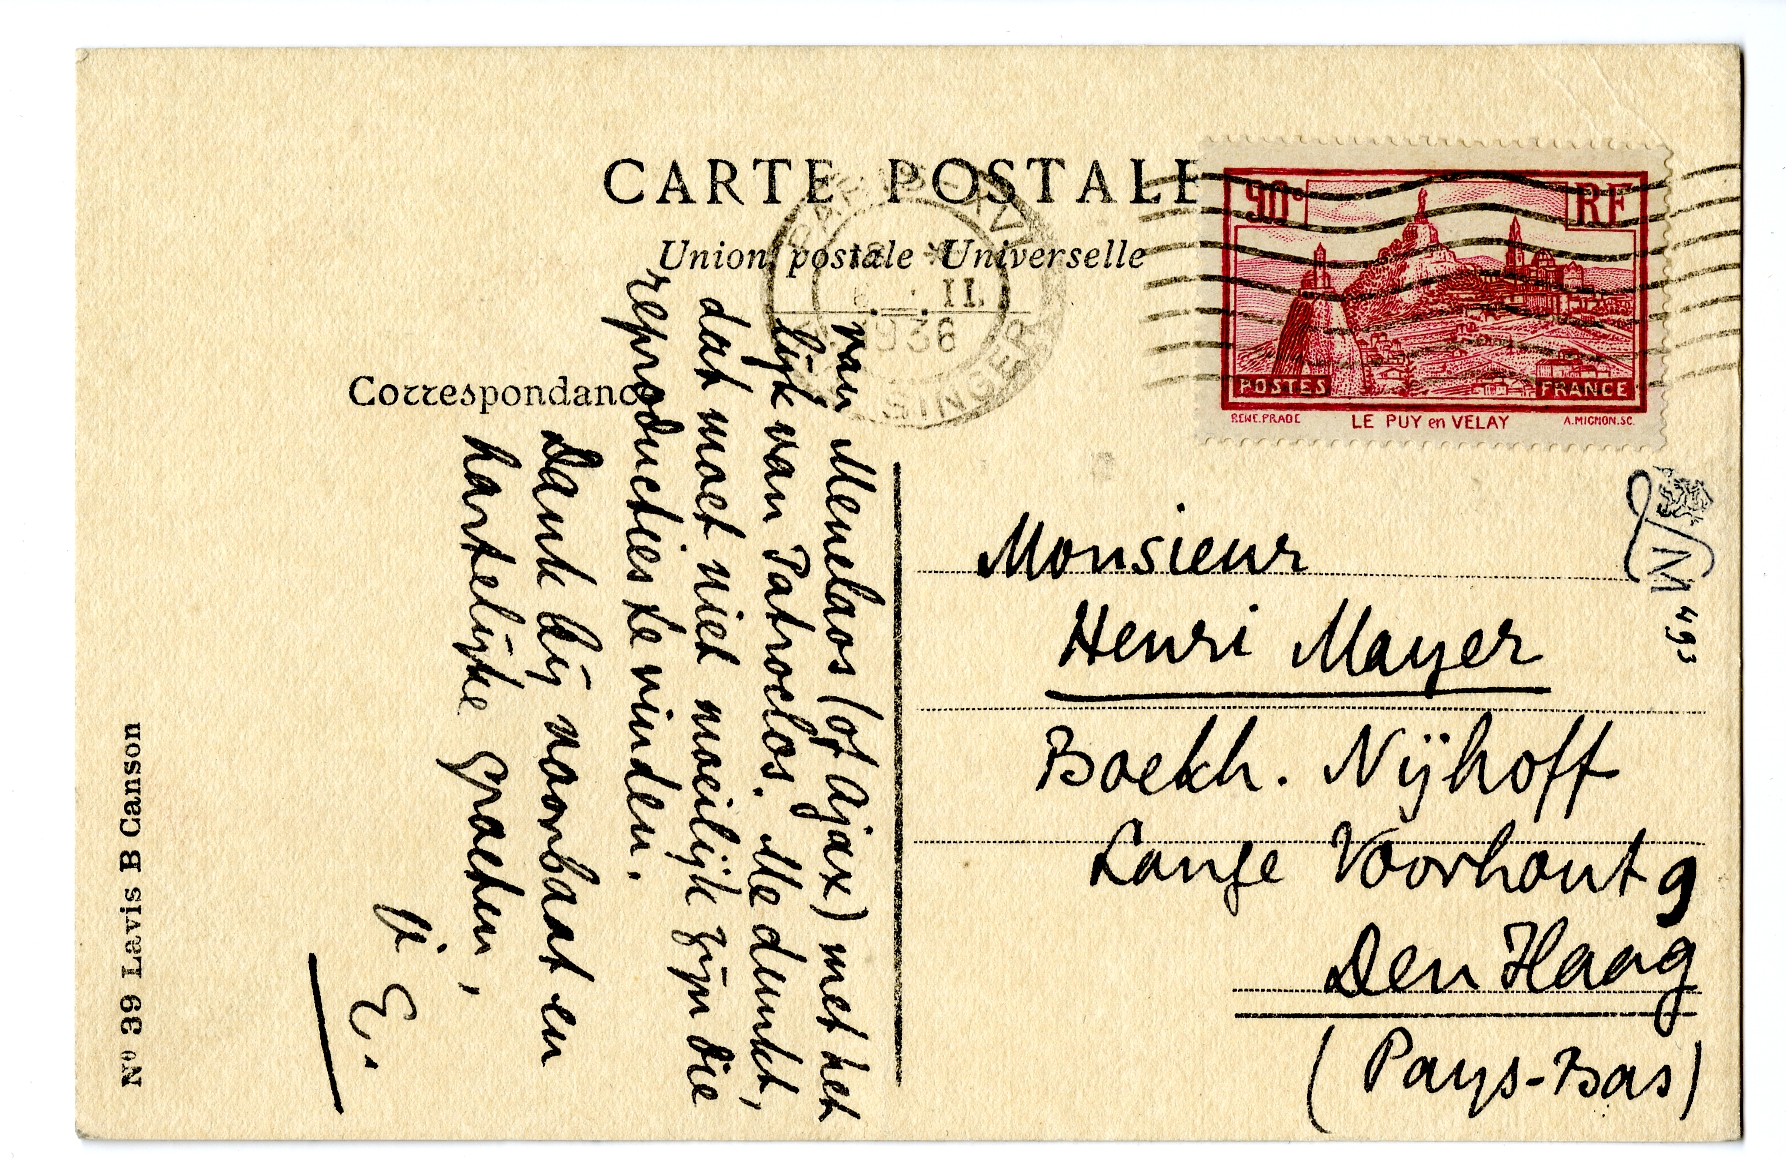 CARTE POSTALE
Union postale Universelle
Correspondance
90c
RF
POSTES
FRANCE
LE PUY en VELAY
A.MIGNON.SC.
II
1936
van Menelaos (of Ajax) met het
lijk van Patroclos. Me dunkt,
dat moet niet moeilijk zijn die
reproducties te vinden.
Dank bij voorbaat en
hartelijke groeten,
je
E.
Monsieur
Henri Mayer
Boekh. Nijhoff
Lange Voorhout 9
Den Haag
(Pays-Bas)
No 39 Lavis B Canson